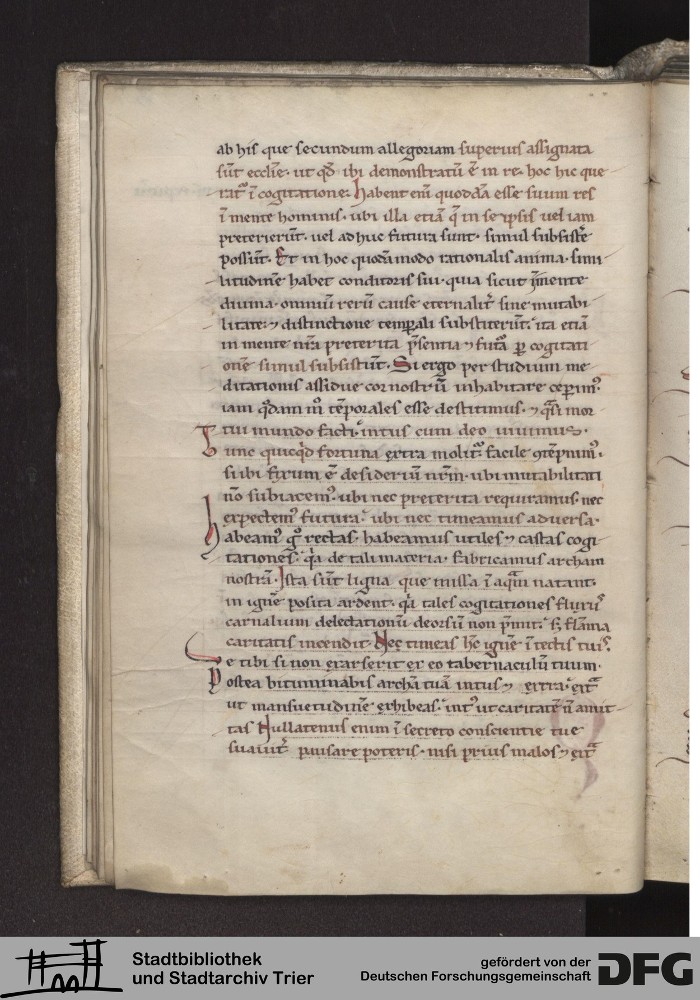 ab his que secundum allegoriam superius assignata
sūt ecclīe· ut qđ ibi demonstratū ē in re· hoc hic que
rat᷑ ī cogitatione· habent enī quoddā esse suum res
ī mente hominis· ubi illa etiā q̄ in se ipsis uel iam
preterierūt· uel adhuc futura sunt· simul subsistē
possūt· Et in hoc quodāmodo rationalis anima· simi
litudinē habet conditoris sui· quia sicut in mente
diuina· omniū rerū cause eternalit᷑ sine mutabi
litate ⁊ distinctione temꝑali substiterūt· ita etiā
in mente nr̄a preterita p̄sentia ⁊ fut᷑a ꝑ cogitati
onē simul subsistūt· Si ergo per studium me
ditationis assidue cor nostrū inhabitare ceperim᷒·
iam q̄dam m̊ tēporales esse destitimus· ⁊ q̄si mor
tui mundo facti· intus cum deo uiuimus·
Tunc quicq̇d fortuna extra molit᷑ facile ꝯtēpnim᷒·
si ibi fixum ē desideriū nr̄m· ubi mutabilitati
nō subiacem᷒· ubi nec preterita requiramus· nec
expectem᷒ futura· ubi nec timeamus aduersa·
habeam᷒ gͦ rectas· habeamus utiles ⁊ castas cogi
tationes· q̇a de tali materia· fabricamus archam
nostrā· Ista sūt ligna que missa ī aquā natant·
in igne posita ardent· q̇a tales cogitationes fluxū
carnalium delectationū deorsū non p̄mit᷑· s; flāma
caritatis incendit· Nec timeas hc̄ ignē ī tectis tuis·
Ve tibi si non exarserit ex eo tabernaculū tuum·
Postea bituminabis archā tuā intus ⁊ extra· ext᷑
ut mansuetudinē exhibeas· int᷒ ut caritatē n̄ amit
tas Nullatenus enim ī secreto conscientie tue
suauit᷑ pausare poteris· nisi prius malos ⁊ ext᷑
Stadtbibliothek
und Stadtarchiv Trier
gefördert von der
Deutschen Forschungsgemeinschaft
DFG